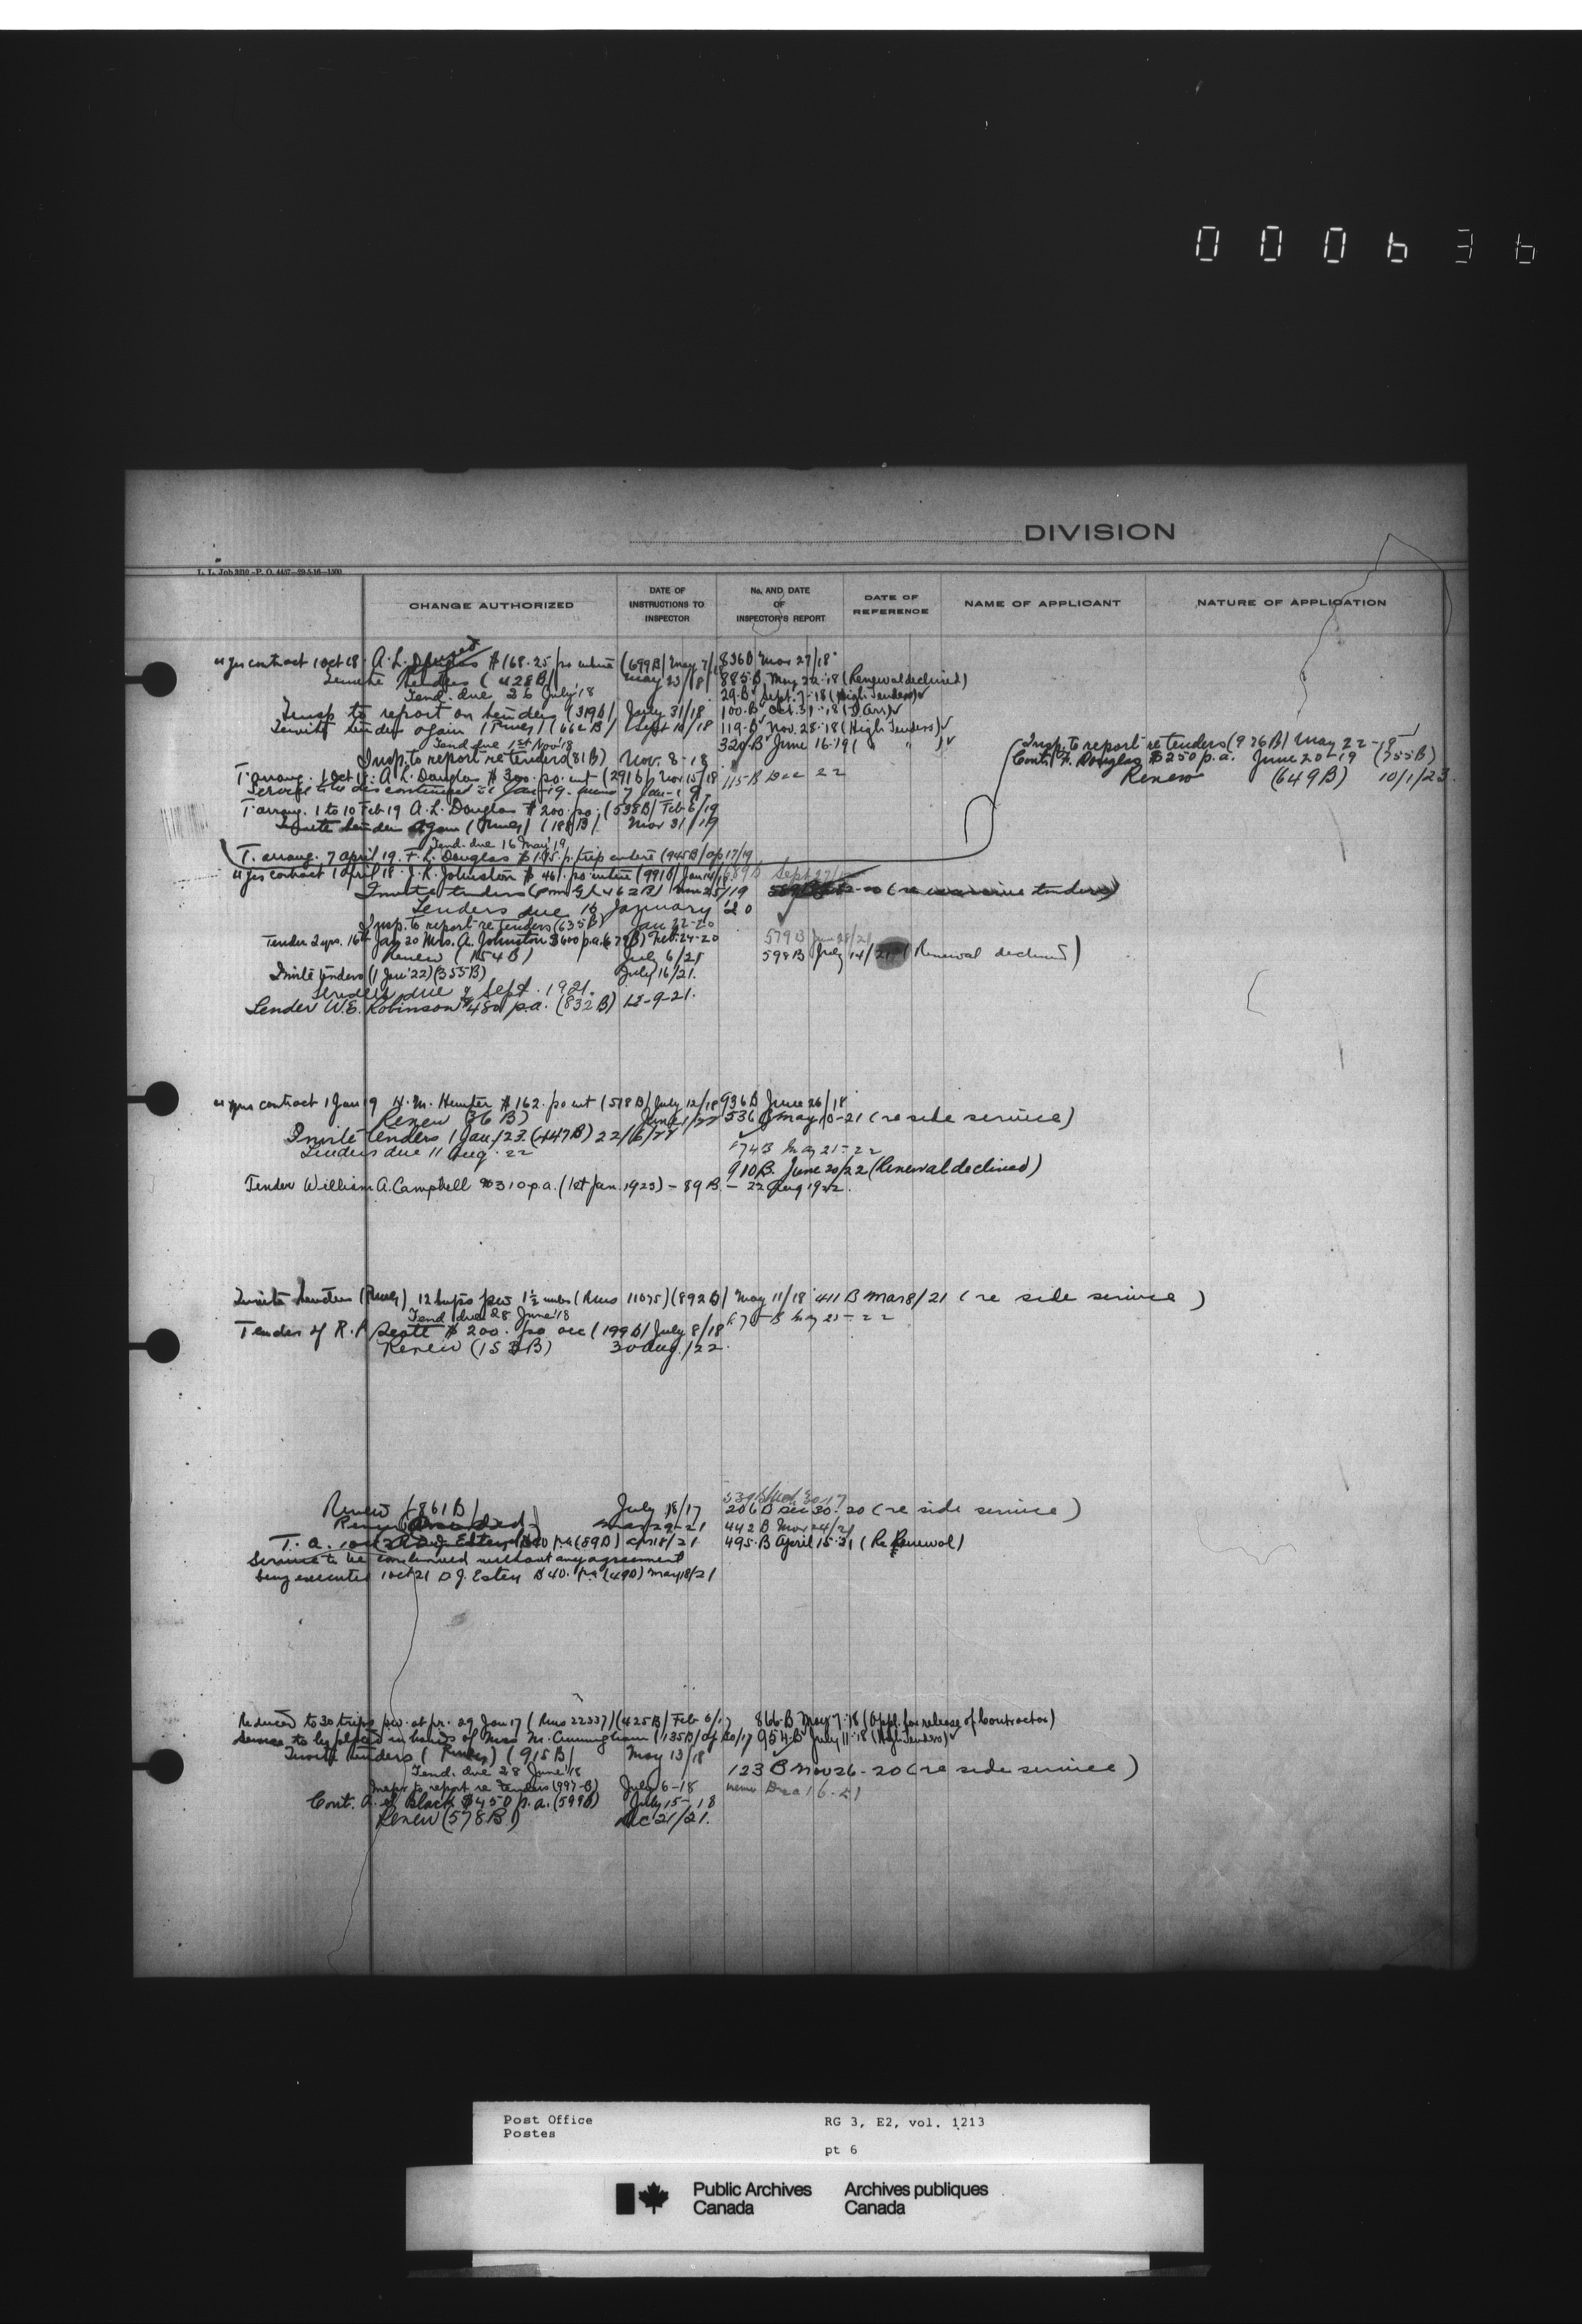 000636
DIVISION
L. L. Job 3210-P. O. 4457-29-5-16-1500
CHANGE AUTHORIZED
DATE OF INSTRUCTIONS TO INSPECTOR
No. AND DATE OF INSPECTOR'S REPORT
DATE OF REFERENCE
NAME OF APPLICANT
NATURE OF APPLICATION
4 yrs contract 1 Oct 18 A. L. Douglas $168.25 pa entire (699B) May 7/18 836B Mar 27/18
Invite tenders (428B) May 23/18 885-B May 22-18 (Renewal declined)
Tend. due 26 July '18 29-B Sept. 7-18 (High Tenders)
Insp to report on tenders (319B) July 31/18 100-B Oct. 31-18 (T Arr)
Invite tender again (Rmes) (662B) Sept 10/18 119-B Nov. 28-18 (High Tenders)
Tend due 1st Nov '18 320-B June 16-19 ( " )
Insp. to report re tenders (81B) Nov. 8-18
T arrang. 1 Oct 18. A. L. Douglas $300. pa. ent (291B) Nov 15/18 115-B Dec 22
Service to be discontinued 1 Jan-19
T arrang. 1 to 10 Feb 19 A. L. Douglas $200. pa. (538B) Feb 6/19
Invite tender again (Rmes) (188B) Mar 31/19
Tend. due 16 May '19
T. arrang. 7 April 19. F. L. Douglas $1.95 p. trip entire (945B) Ap 17/19
Insp. to report re tenders (926B) May 22-19
Cont. F. Douglas $250 p.a. June 20-19 (755B)
Renew (649B) 10/1/23.
4 yrs contract 1 April 18. J. R. Johnston $461. pa entire (991B) Jan 14/18 689B Sept 27/
Invite tenders (462B) Nov 25/19
Tenders due 16 January '20
Insp. to report re tenders (635B) Jan 22-20
Tender 2 yrs. 16th Jan 20 Mrs. A. Johnston $600 p.a. (679B) Feb. 24-20 579B Jun 28/21
Renew (154B) July 6/21 598B July 14/21 (Renewal declined)
Invite tenders (1 Jan '22) (355B) July 16/21.
Tenders due 9 Sept. 1921.
Tender W. E. Robinson $480 p.a. (832B) 12-9-21.
4 yrs contract 1 Jan 19 H. M. Hunter $162. pa ent (578B) July 12/18 936B June 26/18
Renew (36B) June 1/22 536B May 10-21 (re side service)
Invite tenders 1 Jan./23. (447B) 22/6/22
Tenders due 11 Aug. 22 674B May 21-22
910B. June 20/22 (Renewal declined)
Tender William A. Campbell $310 p.a. (1st Jan. 1923) - 89B. - 22 Aug 1922.
Invite tenders (Rmes) 12 trips pw 1½ miles (Rmes 11075) (892B) May 11/18 411B Mar 8/21 (re side service)
Tend due 28 June '18 675-B May 21-22
Tender of R. A. Scott $200. pa acc (199B) July 8/18
Renew (153B) 30 Aug. /22.
Renew (861B) July 18/17 206B Dec 30-20 (re side service)
Mar 29-21 442B Mar 24/21
T. a. D. J. Estey $40 pa (89B) Ap 18/21 495-B April 15-21 (Re Renewal)
Service to be continued without any agreement
being executed 1 Oct 21 D. J. Estey $40. pa (49D) May 18/21
Reduced to 30 trips pw. at pr. 29 Jan 17 (Rmes 22337) (425B) Feb 6/17 866-B May 7-18 (Appl. for release of Contractor)
Service to be placed in hands of Miss M. Cunningham (135B) Ap 20/17 954-B July 11-18 (High Tenders)
Invite tenders (Rmes) (915B) May 13/18
Tend. due 28 June '18 123B Nov 26-20 (re side service)
Inspr to report re tenders (997-B) July 6-18 memo Dec 16-21
Cont. A. S. Black $450 p.a. (599B) July 15-18
Renew (578B) Dec 21/21.
Post Office
Postes
RG 3, E2, vol. 1213
pt 6
Public Archives Canada
Archives publiques Canada